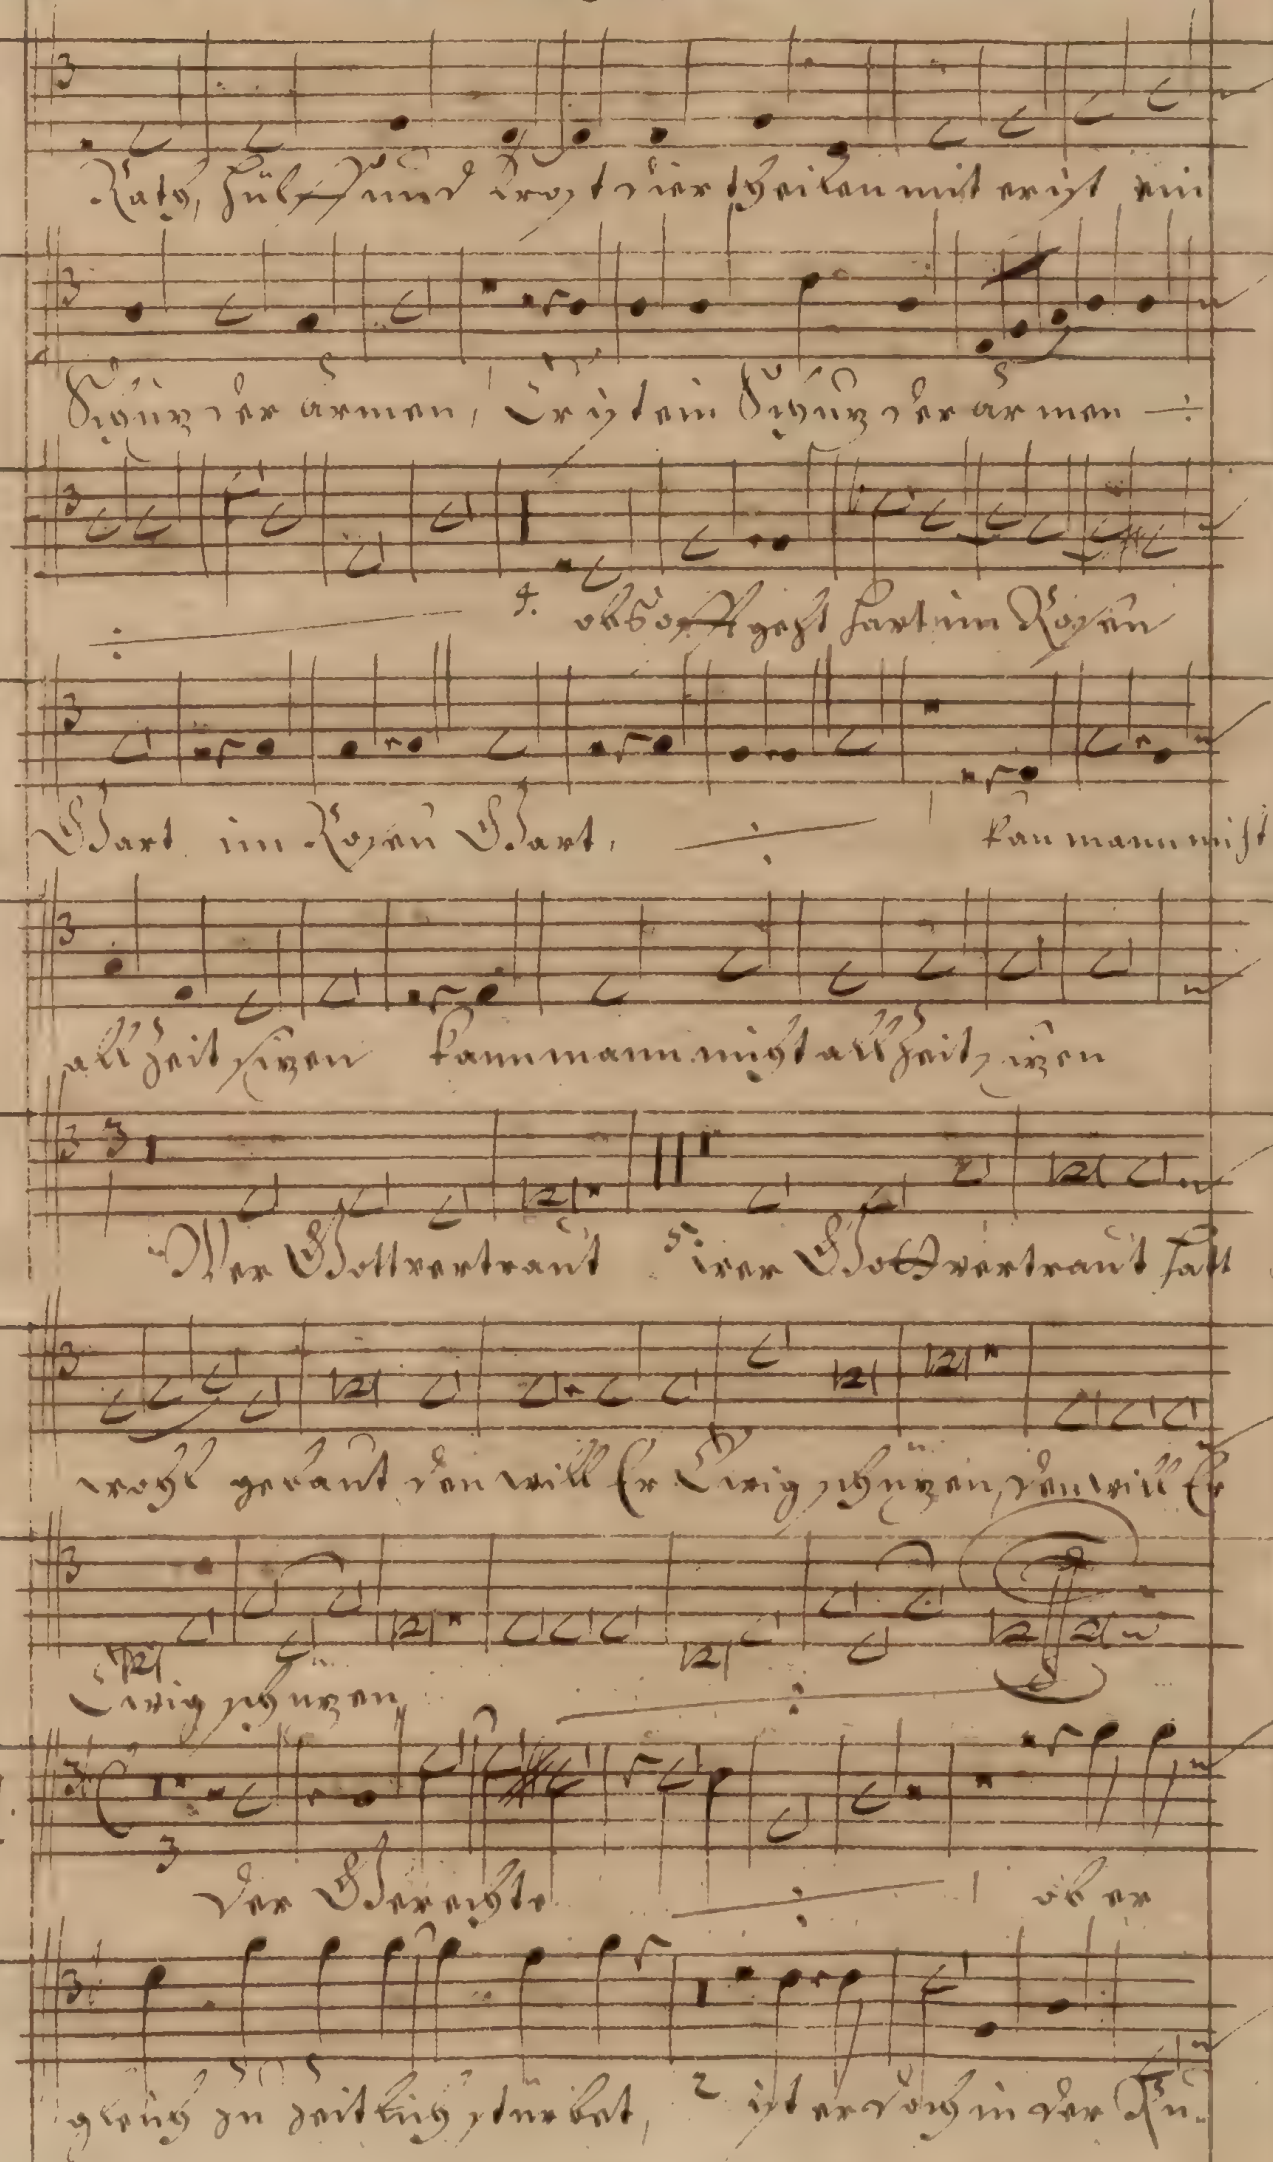 Rath, hülff und trost dier theilen mit er ist ein
Schuz der armen, Er ist ein Schuz der armen ÷
÷ 4. ob's offt geht hart im Rosen
Gart im Rosen Gart, ÷ kan mann nicht
all Zeit sizen kann mann nicht all Zeit sizen
Wer Gott vertraut 5. wer Gott vertraut hatt
wohl gebaut den will Er Ewig schüzen, den will Er
Ewig schüzen, ÷
3
Der Gerechte ÷ ob er
gleich zu zeitlich stürbet, 2 ist er doch in der Ru-